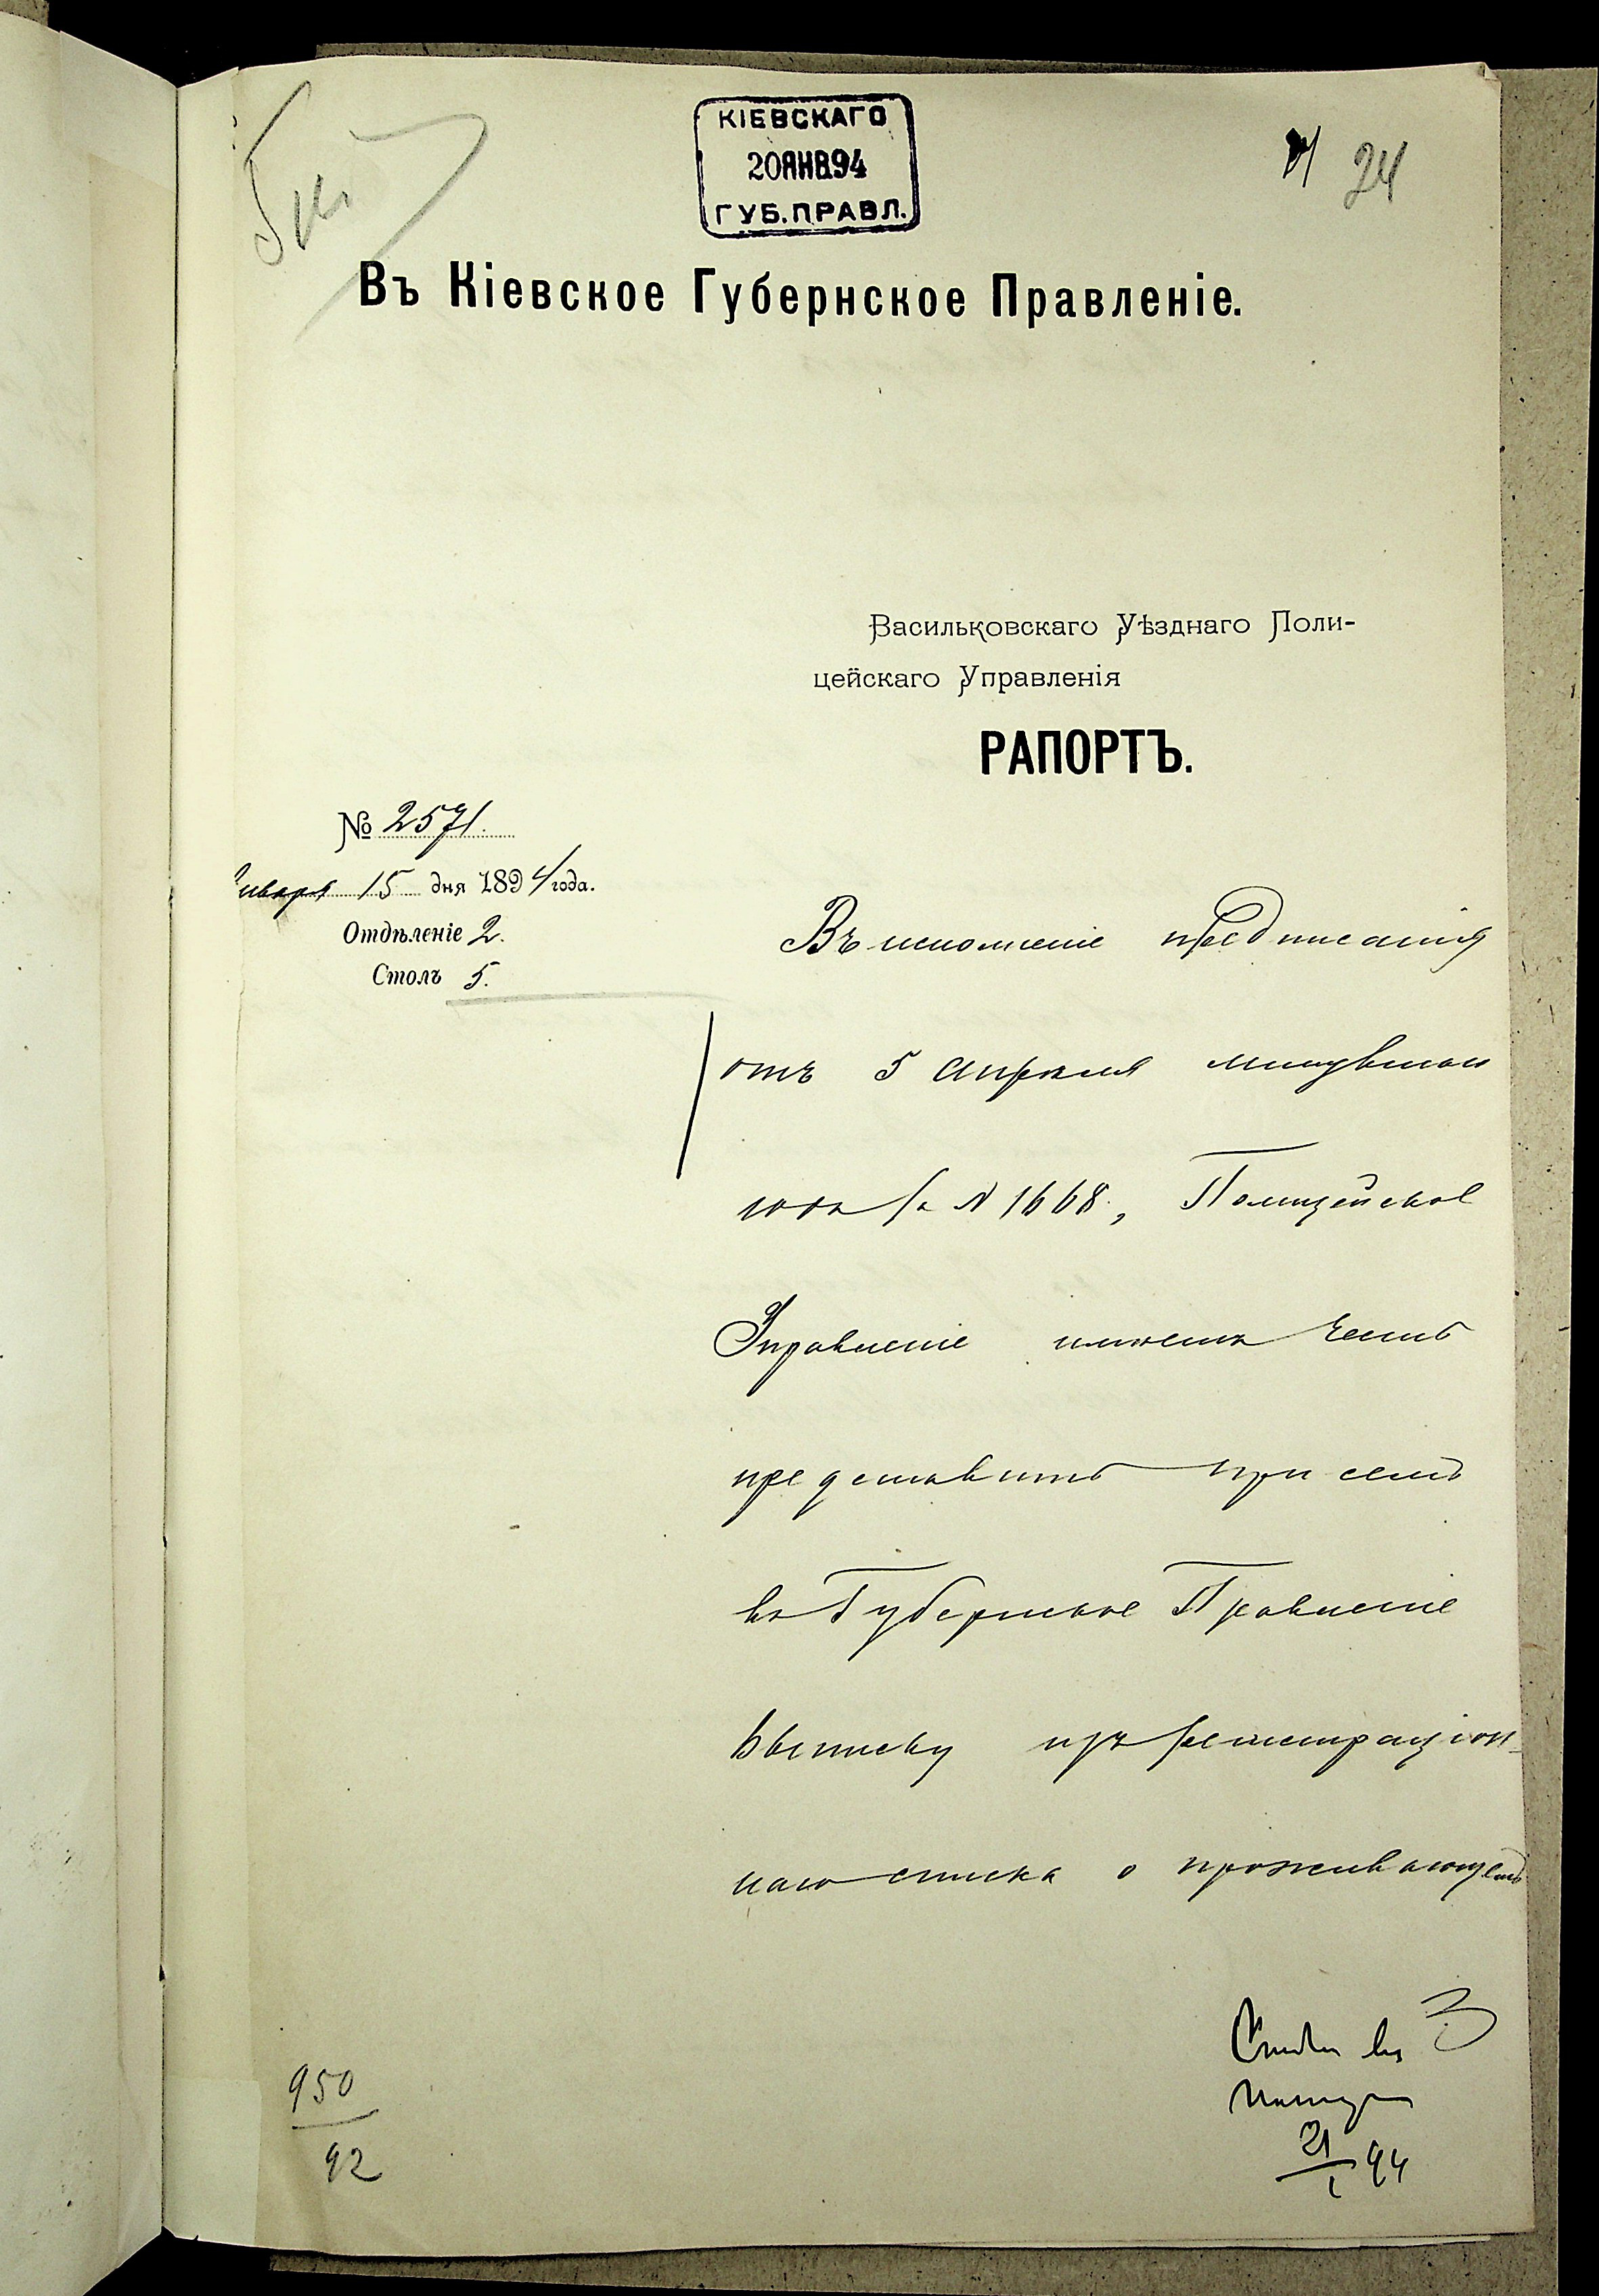 КІЕВСКАГО
20 ЯНВ. 94
ГУБ. ПРАВЛ.
24
Въ Кіевское Губернское Правленіе.
Васильковскаго Уѣзднаго Поли-
цейскаго Управленія
РАПОРТЪ.
№ 2571.
Января 15 дня 1894 года.
Отдѣленіе 2.
Столъ 5.
Въ исполненіе предписанія
отъ 5 Апрѣля минувшаго
года за № 1668, Полицейское
Управленіе имѣетъ честь
представить при семъ
въ Губернское Правленіе
выписку изъ регистраціон-
наго списка о проживающемъ
3
21/I 94
950/92